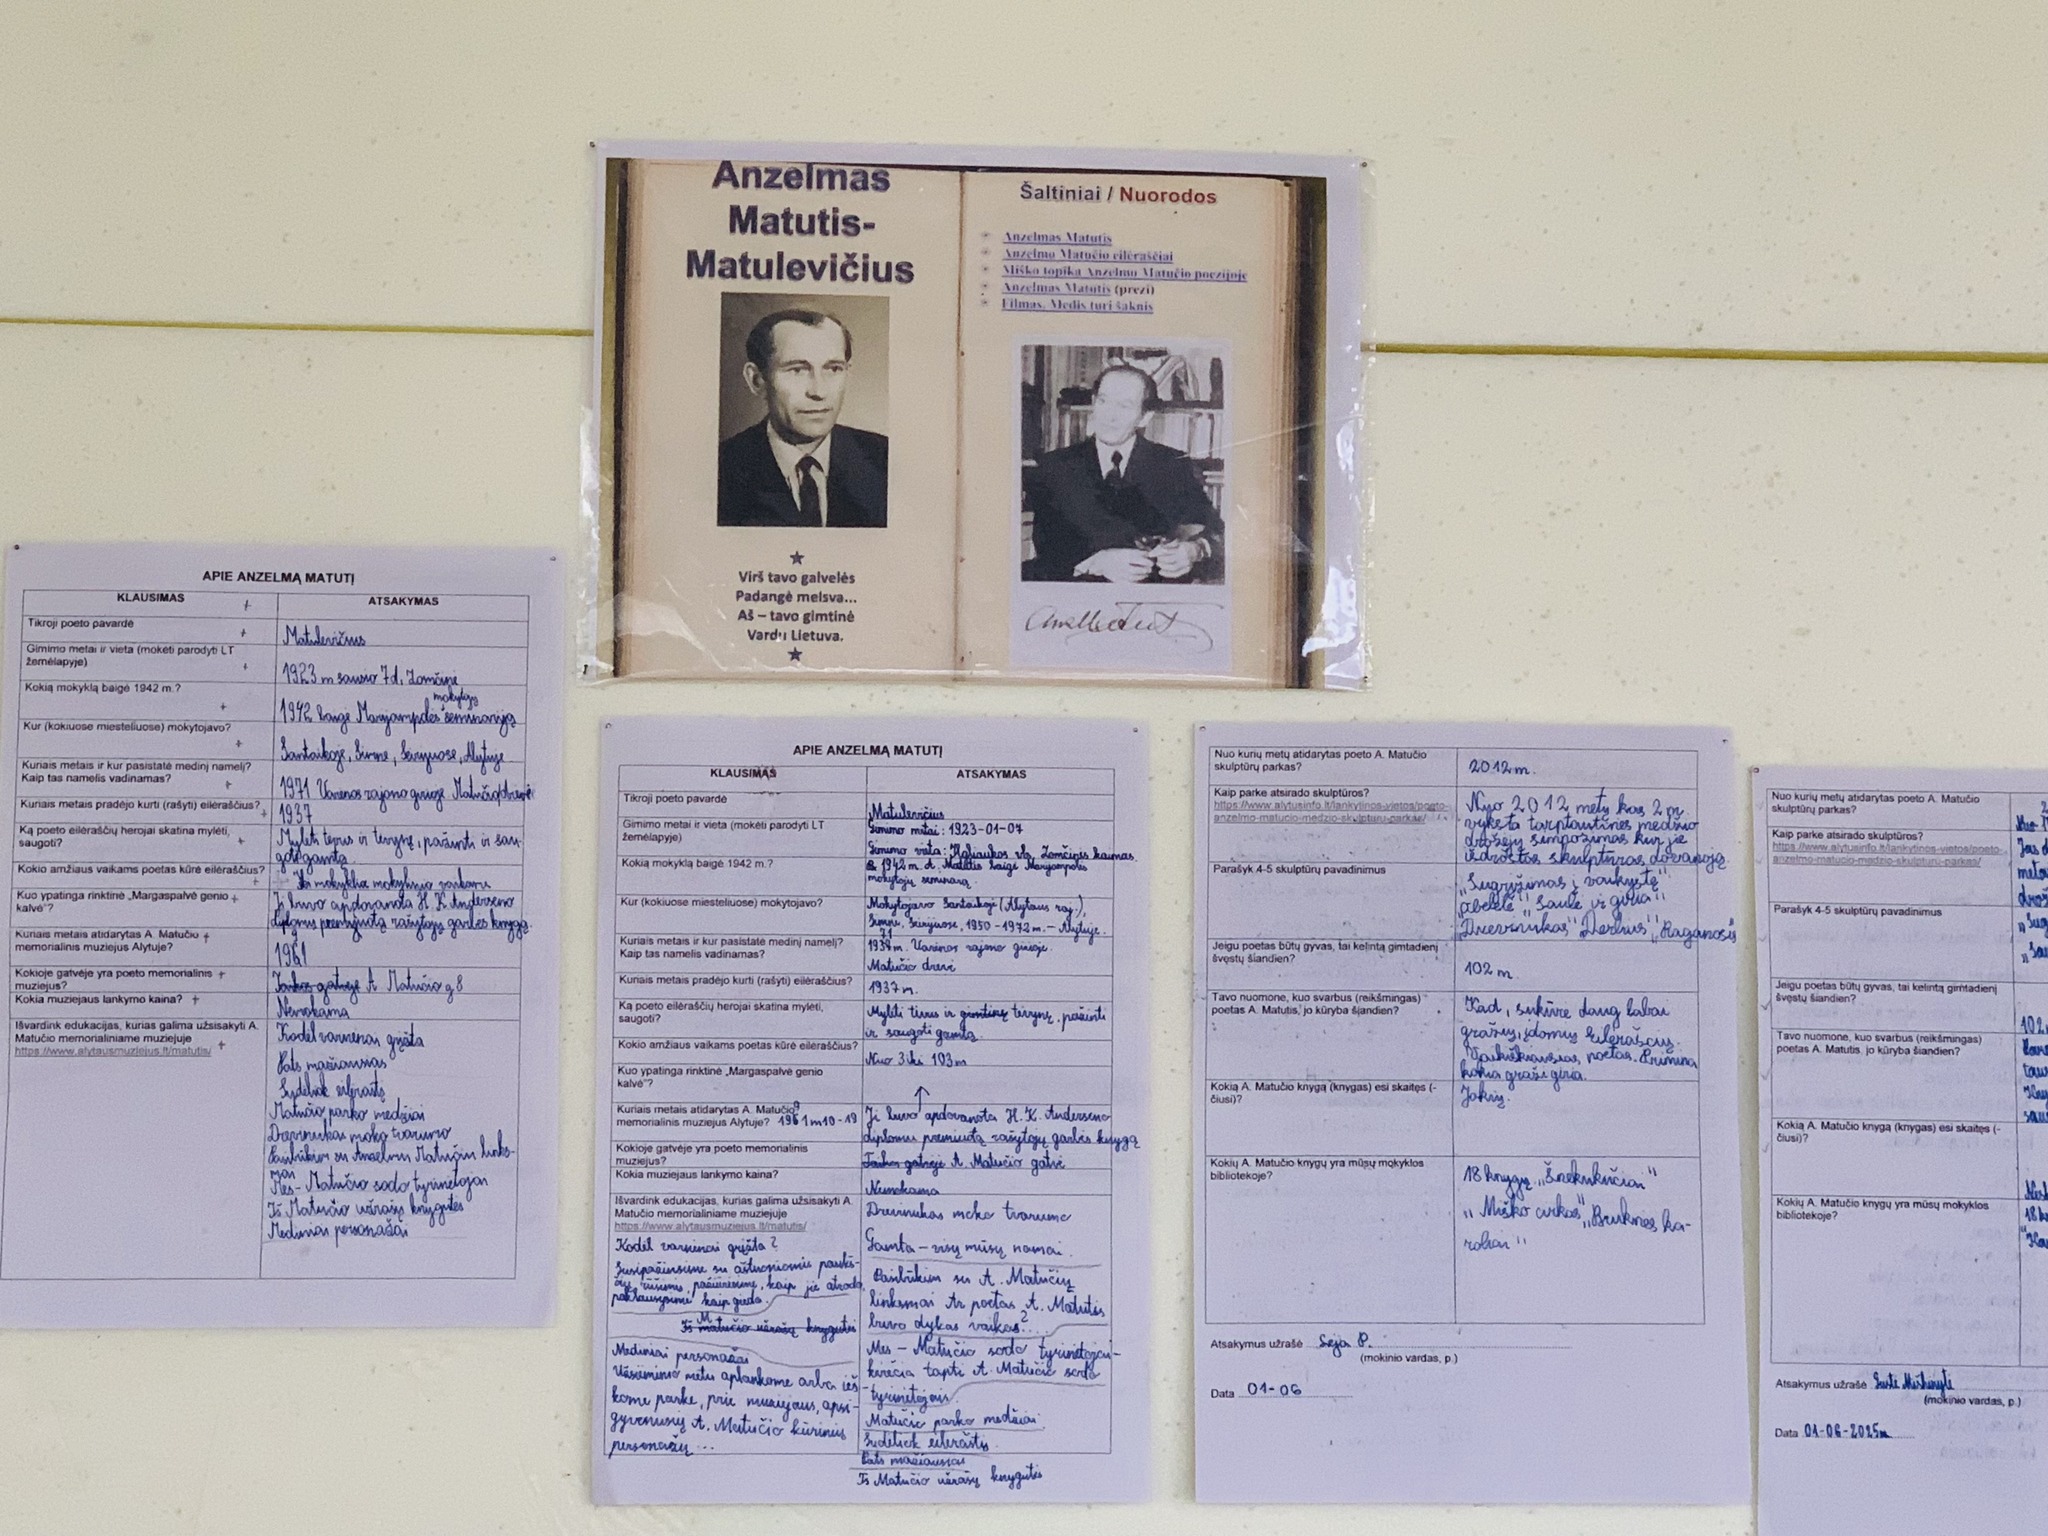 Anzelmas
Matutis-
Matulevičius
★
Virš tavo galvelės
Padangė melsva...
Aš – tavo gimtinė
Vardu Lietuva.
★
Šaltiniai / Nuorodos
Anzelmas Matutis
Anzelmo Matučio eilėraščiai
Miško topika Anzelmo Matučio poezijoje
Anzelmas Matutis (prezi)
Filmas. Medis turi šaknis
APIE ANZELMĄ MATUTĮ
KLAUSIMAS
ATSAKYMAS
Tikroji poeto pavardė
Matulevičius
Gimimo metai ir vieta (mokėti parodyti LT
žemėlapyje)
1923 m sausio 7d, Zomčinė
Kokią mokyklą baigė 1942 m.?
mokytojų
1942 baigė Marijampolės seminariją
Kur (kokiuose miesteliuose) mokytojavo?
Santaikoje, Simne, Seirijuose, Alytuje
Kuriais metais ir kur pasistatė medinį namelį?
Kaip tas namelis vadinamas?
1971 Varėnos rajono girioje Matučio drevė
Kuriais metais pradėjo kurti (rašyti) eilėraščius?
1937
Ką poeto eilėraščių herojai skatina mylėti,
saugoti?
Mylėti tėvus ir tėvynę, pažinti ir sau-
goti gamtą
Kokio amžiaus vaikams poetas kūrė eilėraščius?
mokyklinio
Kuo ypatinga rinktinė „Margaspalvė genio
kalvė"?
Ji buvo apdovanota H. K Anderseno
diplomu rašytojų garbės knygą
Kuriais metais atidarytas A. Matučio
memorialinis muziejus Alytuje?
1961
Kokioje gatvėje yra poeto memorialinis
muziejus?
A Matučio g 8
Kokia muziejaus lankymo kaina?
Nemokama
Išvardink edukacijas, kurias galima užsisakyti A.
Matučio memorialiniame muziejuje
https://www.alytausmuziejus.lt/matutis/
Kodėl varnėnai grįžta
Pats mažiausias
Sudėliok eilėraštį
Matučio parko medžiai
Drevinukas moko tvarumo
Pasibūkim su Anzelmu Matučiu links-
mai
Mes - Matučio sodo tyrinėtojai
Iš Matučio užrašų knygutės
Mediniai personažai
APIE ANZELMĄ MATUTĮ
KLAUSIMAS
ATSAKYMAS
Tikroji poeto pavardė
Matulevičius
Gimimo metai ir vieta (mokėti parodyti LT
žemėlapyje)
Gimimo metai: 1923-01-07
Gimimo vieta: Zomčinės kaimas
Kokią mokyklą baigė 1942 m.?
1942 m. Matutis baigė Marijampolės
mokytojų seminarą
Kur (kokiuose miesteliuose) mokytojavo?
Mokytojavo Santaikoje (Alytaus raj.),
Simne, Seirijuose, 1950 - 1972 m. - Alytuje.
Kuriais metais ir kur pasistatė medinį namelį?
Kaip tas namelis vadinamas?
Varėnos rajono girioje.
Matučio drevė
Kuriais metais pradėjo kurti (rašyti) eilėraščius?
1937 m.
Ką poeto eilėraščių herojai skatina mylėti,
saugoti?
Mylėti tėvus ir gimtinę tėvynę, pažinti
ir saugoti gamtą
Kokio amžiaus vaikams poetas kūrė eilėraščius?
Nuo 3 iki
Kuo ypatinga rinktinė „Margaspalvė genio
kalvė"?
Kuriais metais atidarytas A. Matučio
memorialinis muziejus Alytuje? 1961 m 10-19
Ji buvo apdovanota H. K. Anderseno
diplomu rašytojų garbės knygą
Kokioje gatvėje yra poeto memorialinis
muziejus?
A. Matučio gatvė
Kokia muziejaus lankymo kaina?
Nemokama
Išvardink edukacijas, kurias galima užsisakyti A.
Matučio memorialiniame muziejuje
https://www.alytausmuziejus.lt/matutis/
Kodėl varnėnai grįžta?
Susipažinsime su aštuoniomis paukš-
čių rūšimis, pažiūrėsime, kaip jie atrodo,
paklausysime kaip gieda.
Iš Matučio užrašų knygutės
Mediniai personažai
Užsiėmimo metu aplankome arba ieš-
kome parke, prie muziejaus, apsi-
gyvenusių A. Matučio kūrinių
personažų...
Drevinukas moko tvarumo
Gamta – visų mūsų namai.
Pasibūkim su A. Matučiu
linksmai Ar poetas A. Matutis
buvo dykas vaikas?...
Mes - Matučio sodo tyrinėtojai-
kviečia tapti A. Matučio sodo
tyrinėtojais.
Matučio parko medžiai
Sudėliok eilėraštį
Pats mažiausias
Iš Matučio užrašų knygutės
Nuo kurių metų atidarytas poeto A. Matučio
skulptūrų parkas?
2012 m.
Kaip parke atsirado skulptūros?
https://www.alytusinfo.lt/lankytinos-vietos/poeto-
anzelmo-matucio-medzio-skulpturu-parkas/
Nuo 2012 metų kas 2 m.
vyksta tarptautinės medžio
drožėjų simpoziumas kur jie
išdrožtas skulptūras dovanoja
Parašyk 4-5 skulptūrų pavadinimus
„Sugrįžimas į vaikystę"
„Saulė ir giria"
„Drevinukas" „Raganosis"
Jeigu poetas būtų gyvas, tai kelintą gimtadienį
švęstų šiandien?
102 m.
Tavo nuomone, kuo svarbus (reikšmingas)
poetas A. Matutis, jo kūryba šiandien?
Kad, sukūrė daug labai
gražių, įdomių eilėraščių.
Vaikiškiausias poetas. Primena
kokia graži giria.
Kokią A. Matučio knygą (knygas) esi skaitęs (-
čiusi)?
Jokių.
Kokių A. Matučio knygų yra mūsų mokyklos
bibliotekoje?
18 knygų „Šnekučiai"
„Miško cirkas" „Bruknės ka-
roliai"
Atsakymus užrašė Seja P.
(mokinio vardas, p.)
Data 01-06
Nuo kurių metų atidarytas poeto A. Matučio
skulptūrų parkas?
Kaip parke atsirado skulptūros?
https://www.alytusinfo.lt/lankytinos-vietos/poeto-
anzelmo-matucio-medzio-skulpturu-parkas/
Parašyk 4-5 skulptūrų pavadinimus
Jeigu poetas būtų gyvas, tai kelintą gimtadienį
švęstų šiandien?
102
Tavo nuomone, kuo svarbus (reikšmingas)
poetas A. Matutis, jo kūryba šiandien?
Kokią A. Matučio knygą (knygas) esi skaitęs (-
čiusi)?
Kokių A. Matučio knygų yra mūsų mokyklos
bibliotekoje?
Atsakymus užrašė
(mokinio vardas, p.)
Data 01-06-2025m